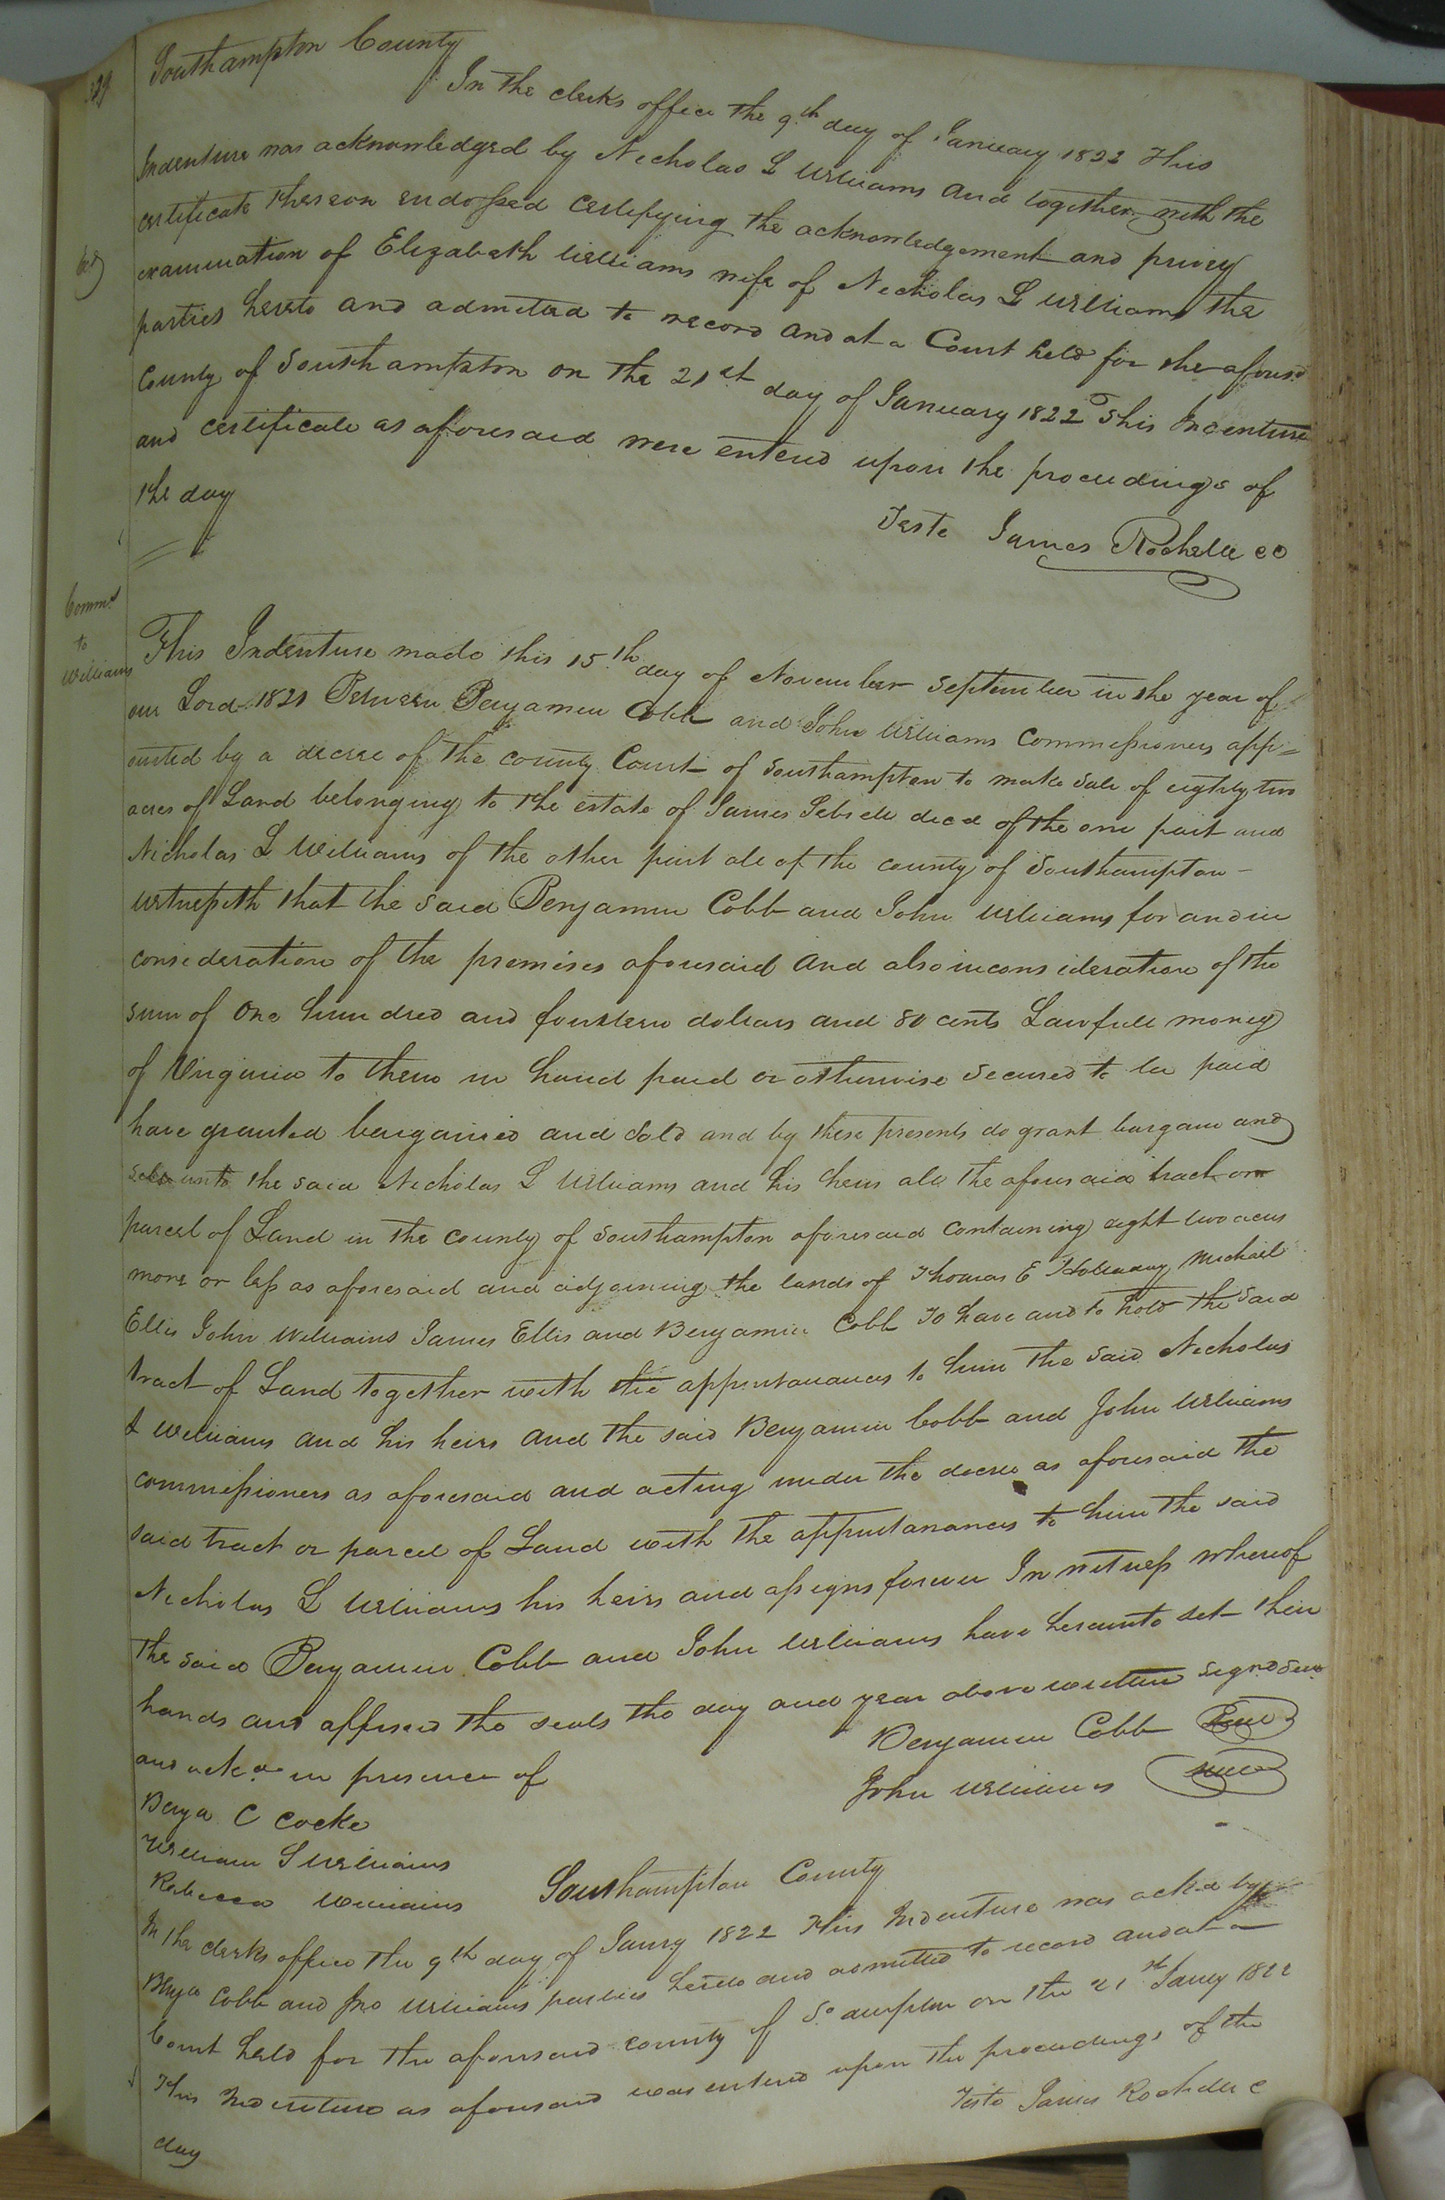 Southampton County
In the clerks office the 9th day of January 1822 This
Indenture was acknowledged by Nicholas L Williams and together with the
certificate thereon endorsed certifying the acknowledgement and privy
examination of Elizabeth Williams wife of Nicholas L Williams the
parties hereto and admitted to record and at a Court held for the aforesd
County of Southampton on the 21st day of January 1822 This Indenture
and certificate as aforesaid were entered upon the proceedings of
the day
Teste James Rochelle CC
Comms
to
Williams
This Indenture made this 15th day of November September in the year of
our Lord 1821 Between Benjamin Cobb and John Williams Commissioners app=
ointed by a decree of the county Court of Southampton to make sale of eighty two
acres of Land belonging to the estate of James Sebrell decd of the one part and
Nicholas L Williams of the other part all of the county of Southampton -
Witnesseth that the said Benjamin Cobb and John Williams for and in
consideration of the premises aforesaid and also in consideration of the
sum of One hundred and fourteen dollars and 80 cents Lawfull money
of Virginia to them in hand paid or otherwise secured to be paid
have granted bargained and sold and by these presents do grant bargain and
sell unto the said Nicholas L Williams and his heirs all the aforesaid tract or
parcel of Land in the county of Southampton aforesaid containing eight two acres
more or less as aforesaid and adjoining the lands of Thomas E Holloway Michael
Ellis John Williams James Ellis and Benjamin Cobb To have and to hold the said
tract of Land together with the appurtanances to him the said Nicholas
L Williams and his heirs and the said Benjamin Cobb and John Williams
commissioners as aforesaid and acting under the decree as aforesaid the
said tract or parcel of Land with the appurtanances to him the said
Nicholas L Williams his heirs and assigns forever In witness whereof
the said Benjamin Cobb and John Williams have hereunto set their
hands and affixed the seals the day and year above written signd
and ackd in presence of
Benjamin Cobb Seal
John Williams Seal
Benja C Cocke
William S Williams
Rebecca Williams
Southampton County
In the clerks office the 9th day of Jany 1822 This Indenture was ackd by
Benja Cobb and Jno Williams parties hereto and admitted to record and at a
Court held for the aforesaid county of So ampton on the 21st Jany 1822
This Indenture as aforesaid was entered upon the proceedings of the
day
Teste James Rochelle C